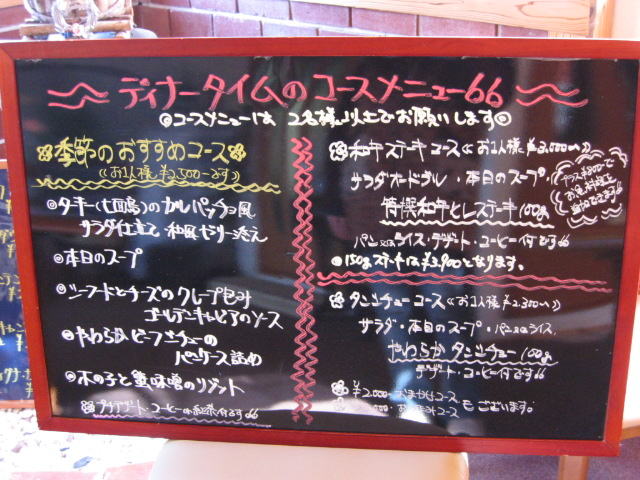 ディナータイムのコースメニュー66
◎コースメニューは 2名様以上でお願いします◎
季節のおすすめコース
≪お1人様 ¥2,500〜です≫
◎ターキー(七面鳥)のカルパッチョ風
サラダ仕立て 和風ゼリー添え
◎本日のスープ
◎シーフードとチーズのクレープ包み
ゴールデンキャビアのソース
◎やわらかビーフシチューの
パンケース詰め
◎木の子と蟹味噌のリゾット
プチデザート・コーヒー or 紅茶付です66
和牛ステーキコース ≪お1人様 ¥3,500〜≫
サラダオードブル・本日のスープ
特撰和牛ヒレステーキ 100g
パン又はライス・デザート・コーヒー付です66
◎150gステーキは¥3,900となります。
プラス¥800で
お魚料理を
追加できます
タンシチューコース ≪お1人様 ¥2,300〜≫
サラダ・本日のスープ・パン又はライス
やわらかタンシチュー 100g
デザート・コーヒー付です66
¥2,000 おまかせコース
もございます。